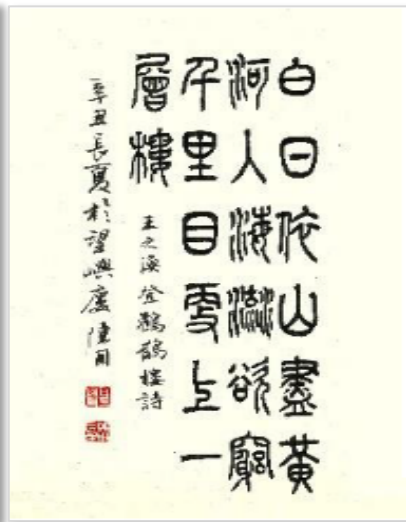 白日依山盡黃
河入海流欲窮
千里目更上一
層樓
王之渙登鸛鵲樓詩
辛丑長夏於望嶼廬陳用